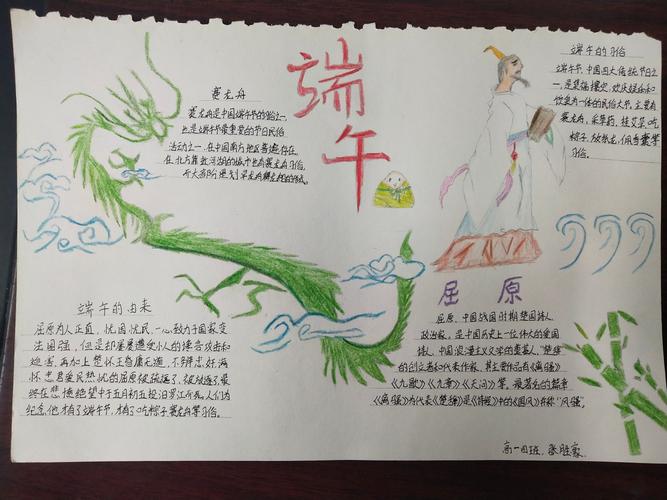 端午
赛龙舟
赛龙舟是中国端午节的习俗之一,
也是端午节最重要的节日民俗
活动之一,在中国南方地区普遍存在
在北方靠近河湖的城市也有赛龙舟习俗,
而大部分是划旱龙舟舞龙船的形式。
端午的习俗
端午节,中国四大传统节日之
一,是集祛病攘灾、欢庆娱乐和
饮食为一体的民俗大节,主要有
赛龙舟,采草药,挂艾草,吃
粽子,放纸龙,佩香囊等
习俗。
端午的由来
屈原为人正直,忧国忧民,一心致力于国家变
法图强,但是却屡屡遭受小人的诽言攻击和
迫害,再加上楚怀王昏庸无道,不辨忠奸,满
怀忠君爱民热忱的屈原被疏远了,被放逐了,最
终在悲愤绝望中于五月初五投汨罗江而死,人们为
纪念他才有了端午节,才有了吃粽子赛龙舟等习俗。
屈 原
屈原,中国战国时期楚国诗人,
政治家,是中国历史上一位伟大的爱国
诗人,中国浪漫主义文学的奠基人,“楚辞”
的创立者和代表作家,其主要作品有《离骚》
《九歌》《九章》《天问》等,最著名的篇章
《离骚》为代表《楚辞》是《诗经》中的《国风》并称“风骚”。
高一四班,张胜豪